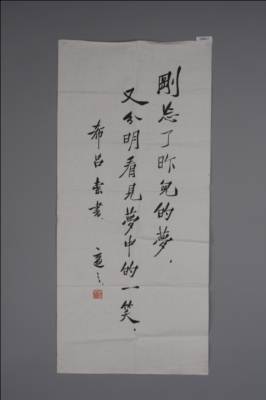 剛忘了昨兒的夢，
又分明看見夢中的一笑．
希呂索書．
適之．